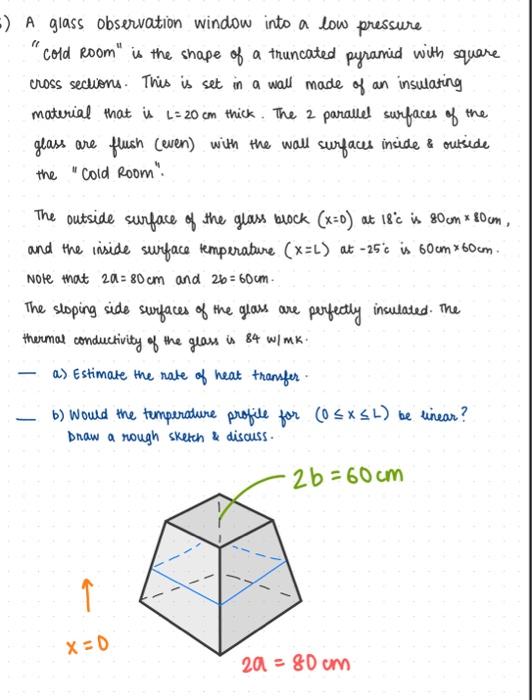 :) A glass observation window into a low pressure
"Cold Room" is the shape of a truncated pyramid with square
cross sections. This is set in a wall made of an insulating
material that is L=20 cm thick. The 2 parallel surfaces of the
glass are flush (even) with the wall surfaces inside & outside
the "Cold Room".
The outside surface of the glass block (x=0) at 18°c is 80cm × 80cm,
and the inside surface temperature (x=L) at -25°c is 60cm × 60cm.
Note that 2a = 80 cm and 2b = 60cm.
The sloping side surfaces of the glass are perfectly insulated. The
thermal conductivity of the glass is 84 W/mK.
— a) Estimate the rate of heat transfer.
— b) Would the temperature profile for (0 ≤ x ≤ L) be linear?
Draw a rough sketch & discuss.
2b = 60 cm
x = 0
2a = 80 cm